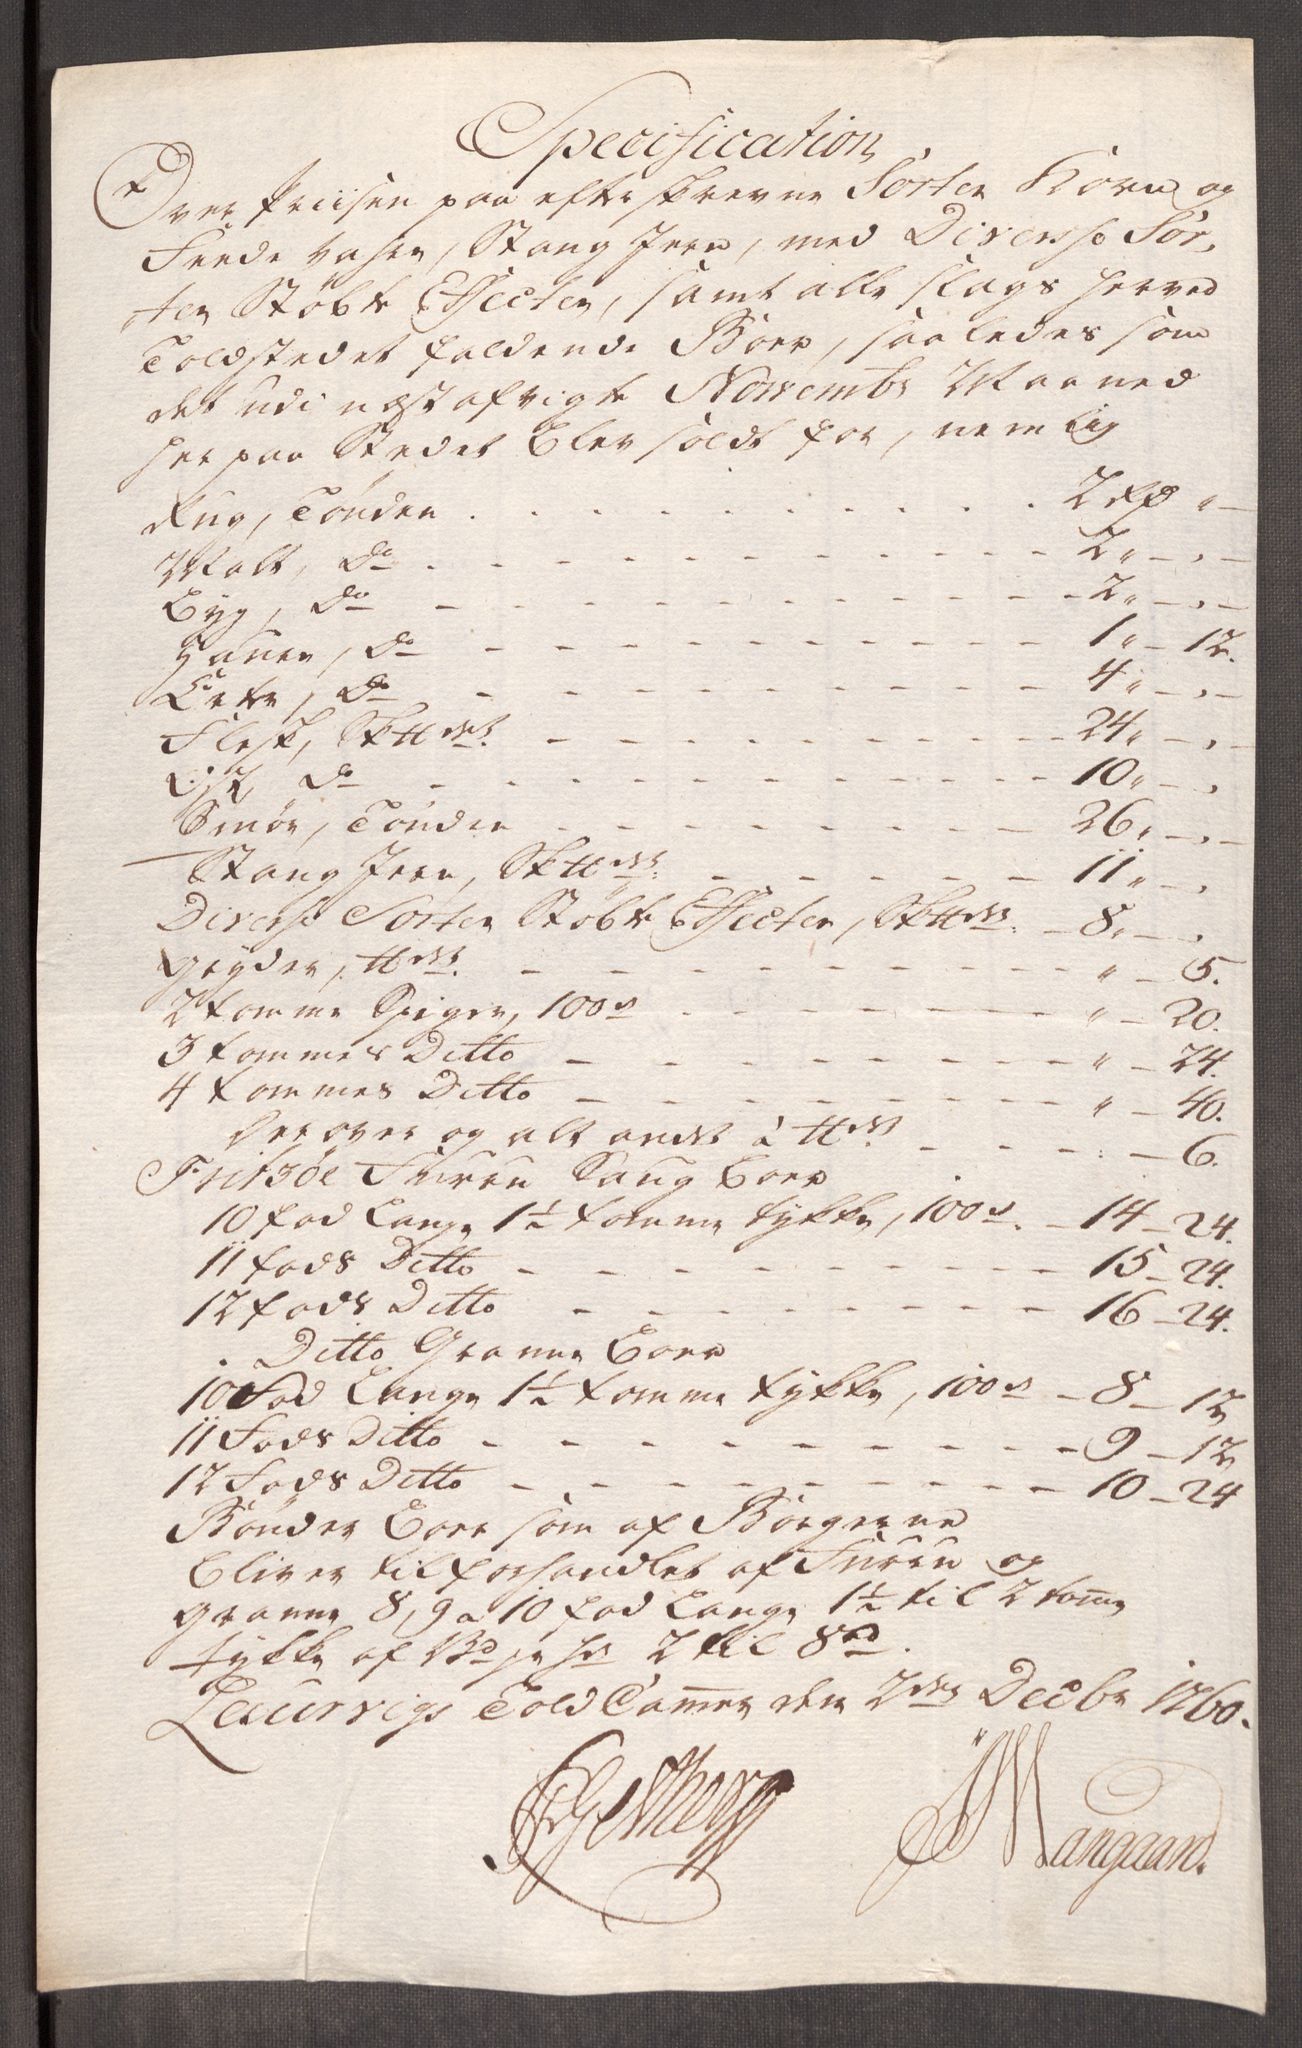 Specification
Over Priisen paa efterskrevne Sorter Korn og
Feede vahrer, Stang Jern, med Diverse Sor-
ter Støbte Effecter, samt alle slags her ved
Toldstedet faldende Borr, saaledes som
det udi næstafvigte Novembr Maaned
her paa Stedet blev soldt for, nemlig
Rug, Tønden . . . . 2 Rd " —
Malt, do — — — 2 " — " —
Byg, do — — — 2 " — " —
Haver, do — — — 1 " — 12.
Erter, do — — — 4 " — " —
Flesk, Sk℔det — — — 24 " — " —
Ost, do — — — 10 " — "
Smør, Tønden — — — 26 " — " —
Stang Jern, Sk℔det — — — 11 " — "
Diverse Sorter Støbte Effecter, Sk℔det — 8 " — "
Gryder, ℔det — — — " — 5.
2 tomme Spiger, 100de — — — " — 20.
3 tommes Ditto — — — " — 24.
4 tommes Ditto — — — " — 40.
Derover og alt andet à ℔det — — — " — 6.
Fritzöe Furru Saug Bord
10 fod Lange 1½ tomme tykke, 100de — 14 — 24.
11 fods Ditto — — — 15 — 24.
12 fods Ditto — — — 16 — 24.
Ditto Granne Bord
10 Fod Lange 1½ tomme tykke, 100de — 8 — 12
11 Fods Ditto — — — 9 — 12
12 Fods Ditto — — — 10 — 24
Bönder Bord som af Borgerne
bliver tilforhandlet af Furru og
granne 8, 9 a 10 fod Lange 1½ til 2 tome
tykke af 2 til 8
Laurvigs Told Camer den 2den Decbr 1760.
Maangaard.